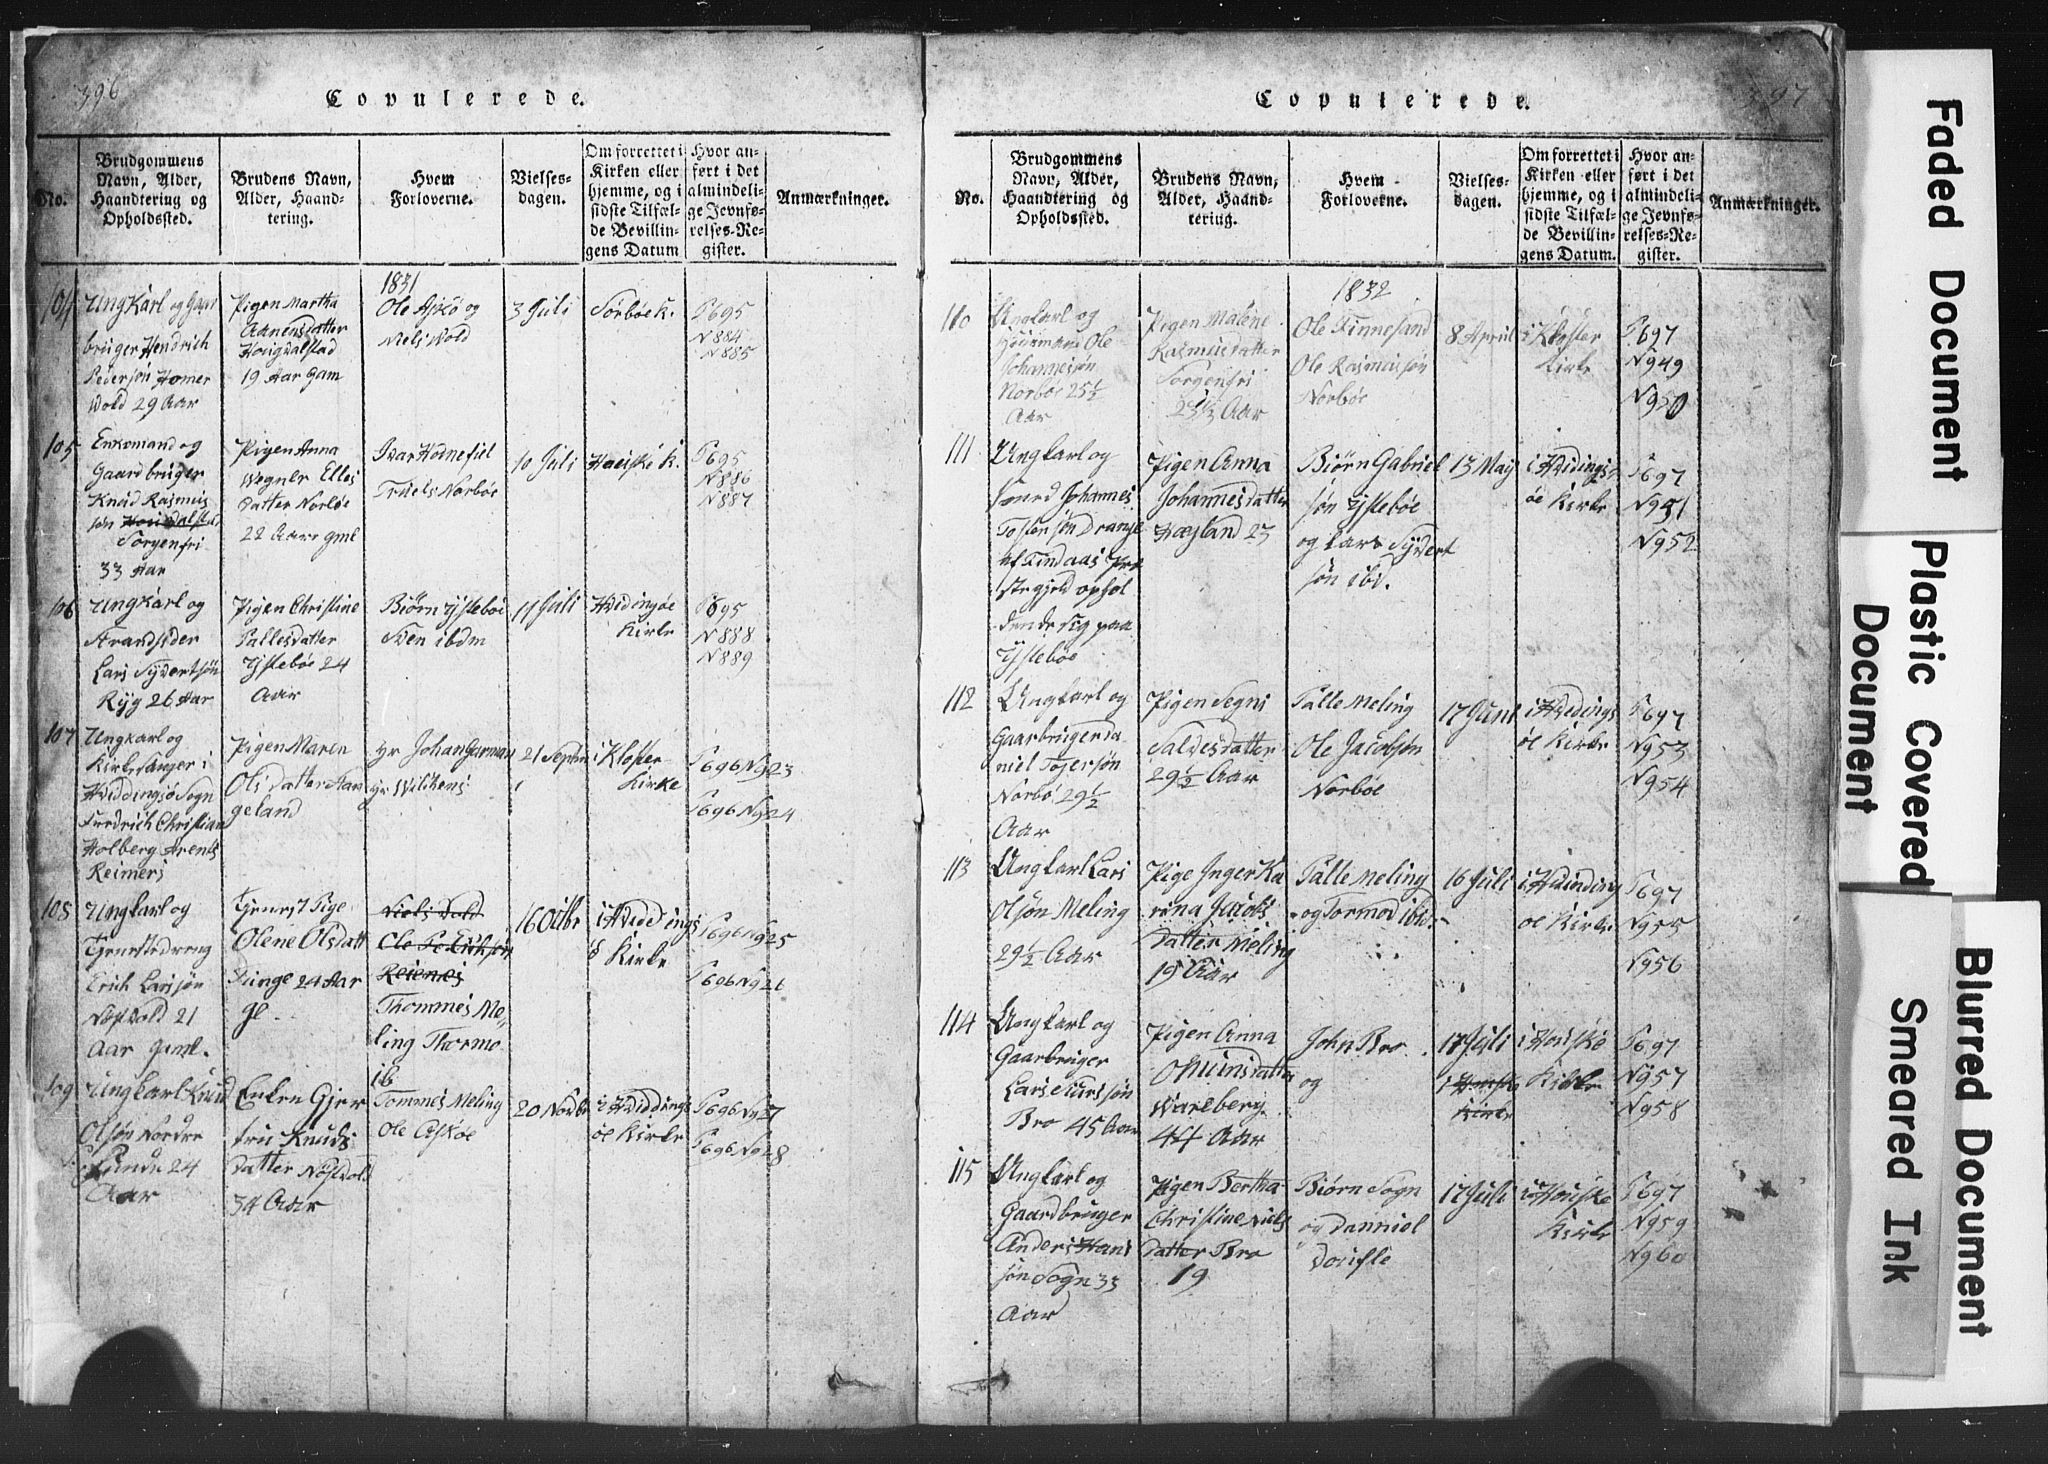 396
Copulerede.
No.
Brudgommens
Navn, Alder,
Haandtering og
Opholdssted.
Brudens Navn,
Alder, Haand-
tering.
Hvem
Forloverne.
Vielses-
dagen.
Om forrettet i
Kirken eller
hjemme, og i
sidste Tilfæl-
de Bevillin-
gens Datum
Hvor an-
ført i det
almindeli-
ge Jevnfø-
relses-Re-
gister.
Anmærkninger.
1831
104
Ungkarl og Gaar
bruger Hendrich
Pedersøn Homer
Vold 29 Aar
Pigen Martha
Aanensdatter
Hougvalstad
19 Aar Gam
Ole Askø og
Niels Vold
3 Juli
Sørbøe K.
P695
N884
N885
105
Enkemand og
Gaardbruger
Knud Rasmus
søn
Sorgenfri
33 Aar
Pigen Anna
Wegner Elles
datter Norbøe
22 Aar gml
Ivar Hodnefiel
Truels Norbøe
10 Juli
Houske K.
P695
N886
N887
106
Ungkarl og
Strandsider
Lars Syvertsøn
Ryg 26 Aar
Pigen Christine
Pallesdatter
Ystebøe 24
Aar
Biørn Ystebøe
Sven ibdm
17 Juli
Hvidingøe
Kirke
P695
N888
N889
107
Ungkarl og
Kirkesanger i
Hviddingsø Sogn
Fredrich Christian
Holberg Arents
Reimers
Pigen Maren
Olsdatter Haa
geland
Hr Johan Garman
Hr Wilchens
21 Septm
i Kloster
Kirke
P696 N923
P696 N924
108
Ungkarl og
Tjenestedreng
Erich Larssøn
Nøsvold 21
Aar Gml.
Tjenest Pige
Olene Olsdatt
Tunge 24 Aar
gl
Niels Vold
Reienes
Thommes Me-
ling Thormo
ib
16 Octbr
i Hviddings
ø Kirke
P696 N925
P696 N926
109
Ungkarl Knud
Olsøn Nordre
Lunde 24
Aar
Enken Gjer
tru Knuds
datter Nøsvold
34 Aar
Tommes Meling
Ole Askøe
20 Novbr
i Hviddings
øe Kirke
P696 N927
P696 N928
397
Copulerede.
No.
Brudgommens
Navn, Alder,
Haandtering og
Opholdssted.
Brudens Navn,
Alder, Haand-
tering.
Hvem
Forloverne.
Vielses-
dagen.
Om forrettet i
Kirken eller
hjemme, og i
sidste Tilfæl-
de Bevillin-
gens Datum.
Hvor an-
ført i det
almindeli-
ge Jevnfø-
relses-Re-
gister.
Anmærkninger.
1832
110
Ungkarl og
Huusmand Ole
Johannessøn
Norbøe 25½
Aar
Pigen Malene
Rasmusdatter
Sorgenfri
23½ Aar
Ole Finnesand
Ole Rasmussøn
Norbøe
8 April
i Kloster
Kirke
P697
N949
N950
111
Ungkarl og
Smed Johannes
Tostensøn Drange
af Findaas Præ
stegjeld ophol
dende sig paa
Ystebøe
Pigen Anna
Johannesdatter
Hægland 23
Biørn Gabriel
søn Ystebøe
og Lars Syvert
søn ibd.
13 May
i Hvidings
øe Kirke
P697
N951
N952
112
Ungkarl og
Gaarbruger Da
niel Tojersøn
Norbø 29½
Aar
Pigen Segni
Saldesdatter
29½ Aar
Palle Meling
Ole Jacobsøn
Norbøe
17 Juni
i Hvidings
øe Kirke
P697
N953
N954
113
Ungkarl Lars
Olsøn Meling
29½ Aar
Pige Inger Ka
rina Jacobs
datter Meling
19 Aar
Palle Meling
og Tormod ibd.
16 Juli
i Hvinding
øe Kirke
P697
N955
N956
114
Ungkarl og
Gaarbruger
Lars Siursøn
Bro 45 Aar
Pigen Anna
Omunsdatter
Warberg
44 Aar
John Bro
og
17 Juli
Kirke
i Houskø
Kirke
P697
N957
N958
115
Ungkarl og
Gaardbruger
Anders Hans
søn Sogn 33
Aar
Pigen Bertha
Christine Niels
datter Bro
19
Biørn Sogn
og Danniel
Dousle
17 Juli
i Houske
Kirke
P697
N959
N960
Faded Document
Plastic Covered
Document
Blurred Document
Smeared Ink